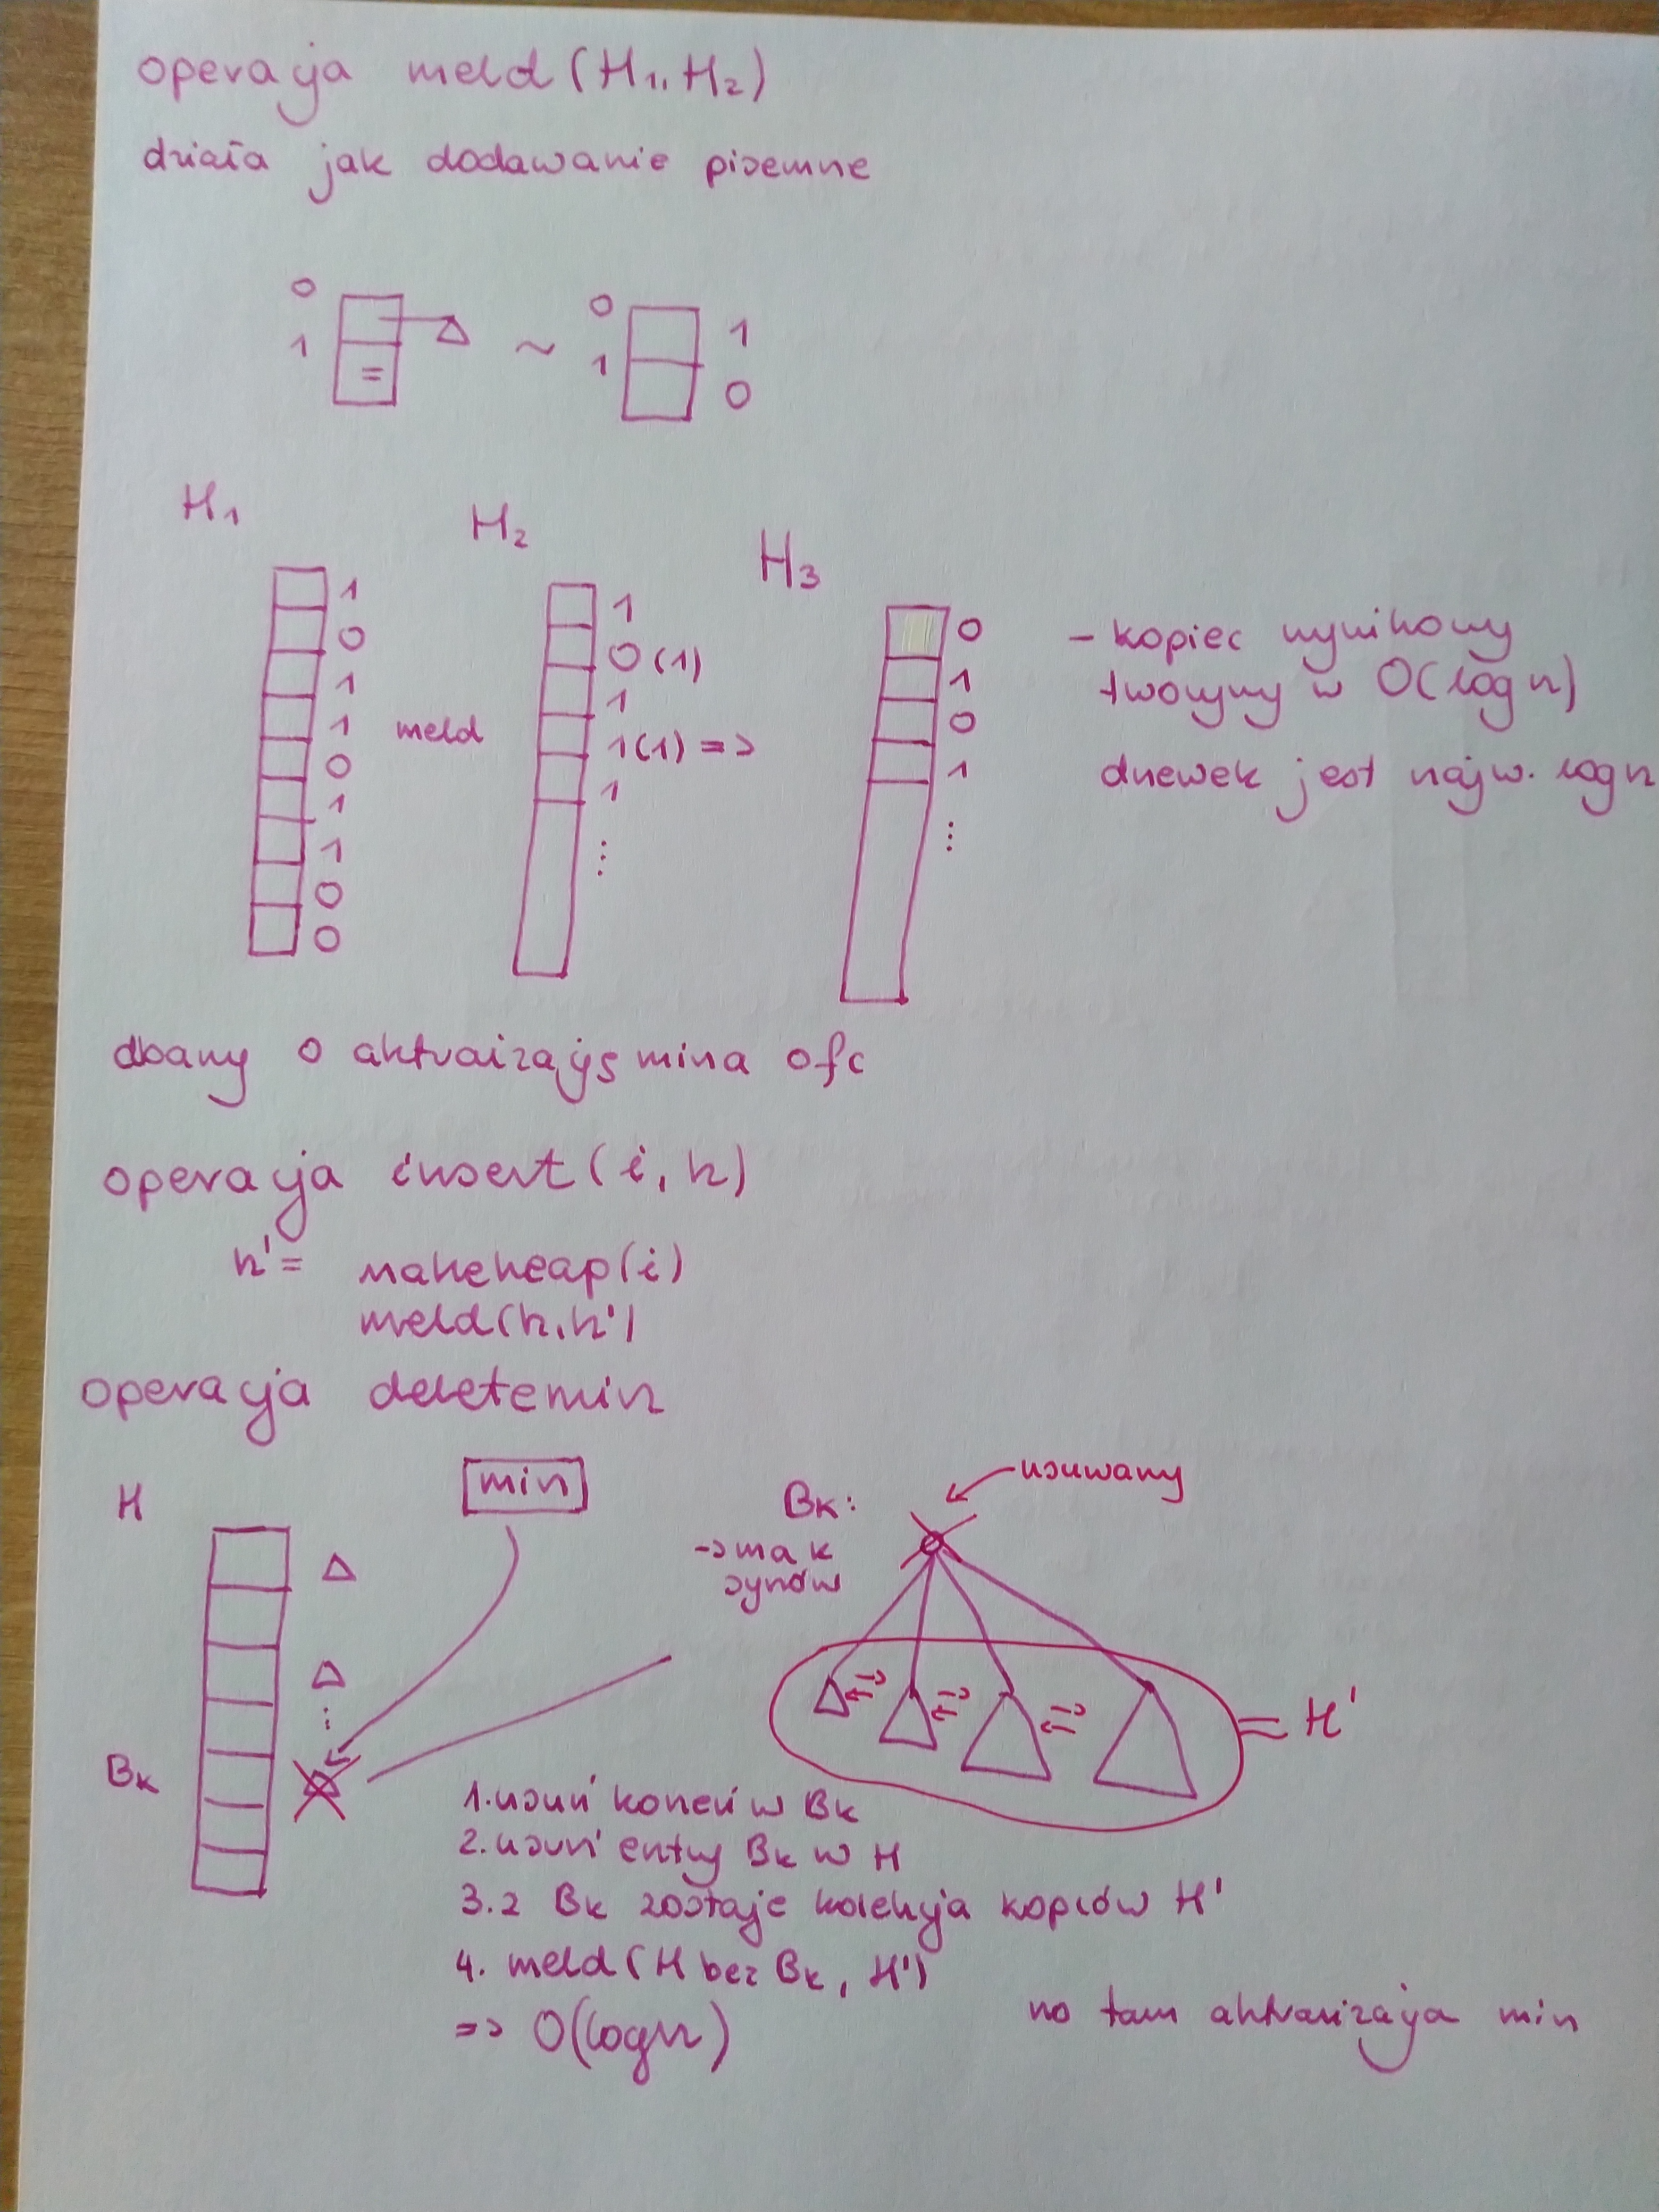 operacja meld(H₁, H₂)
działa jak dodawanie pisemne
0
1
=
~
0 1
1 0
H₁
1
0
1
1
0
1
1
0
0
meld
H₂
1
0 (1)
1
1(1) =>
1
⋮
H₃
0
1
0
1
⋮
- kopiec wynikowy
tworzymy w O(log n)
drzewek jest najw. log n
dbamy o aktualizację mina ofc
operacja insert(i, h)
h' = makeheap(i)
meld(h, h')
operacja deletemin
H
min
⋮
Bₖ
Bₖ:
-> ma k
synów
usuwany
= H'
1. usuń korzeń w Bₖ
2. usuń entry Bₖ w H
3. z Bₖ zostaje kolekcja kopców H'
4. meld(H bez Bₖ, H')
=> O(logn)
no tam aktualizacja min